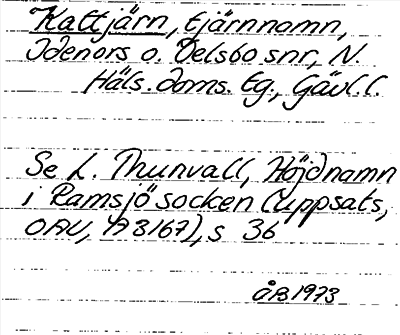 Kattjärn, tjärnnamn,
Idenors o. Delsbo snr, N.
Häls. doms. tg., Gävl. l.
Se L. Thunvall, Höjdnamn
i Ramsjö socken (Uppsats,
OAU, A 3167), s 36
ÅB 1973